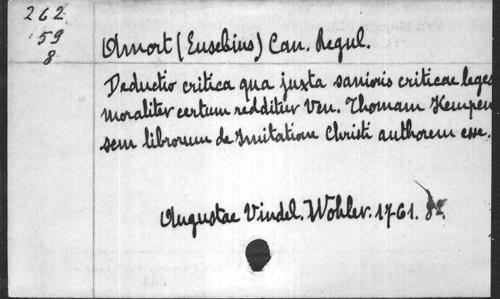 262.
59
8
Amort (Eusebius) Can. Regul.
Deductio critica qua juxta sanioris criticae leges
moraliter certum redditur Ven. Thomam Kempen
sem librorum de Imitatione Christi authorem esse.
Augustae Vindel. Wohler. 1761.